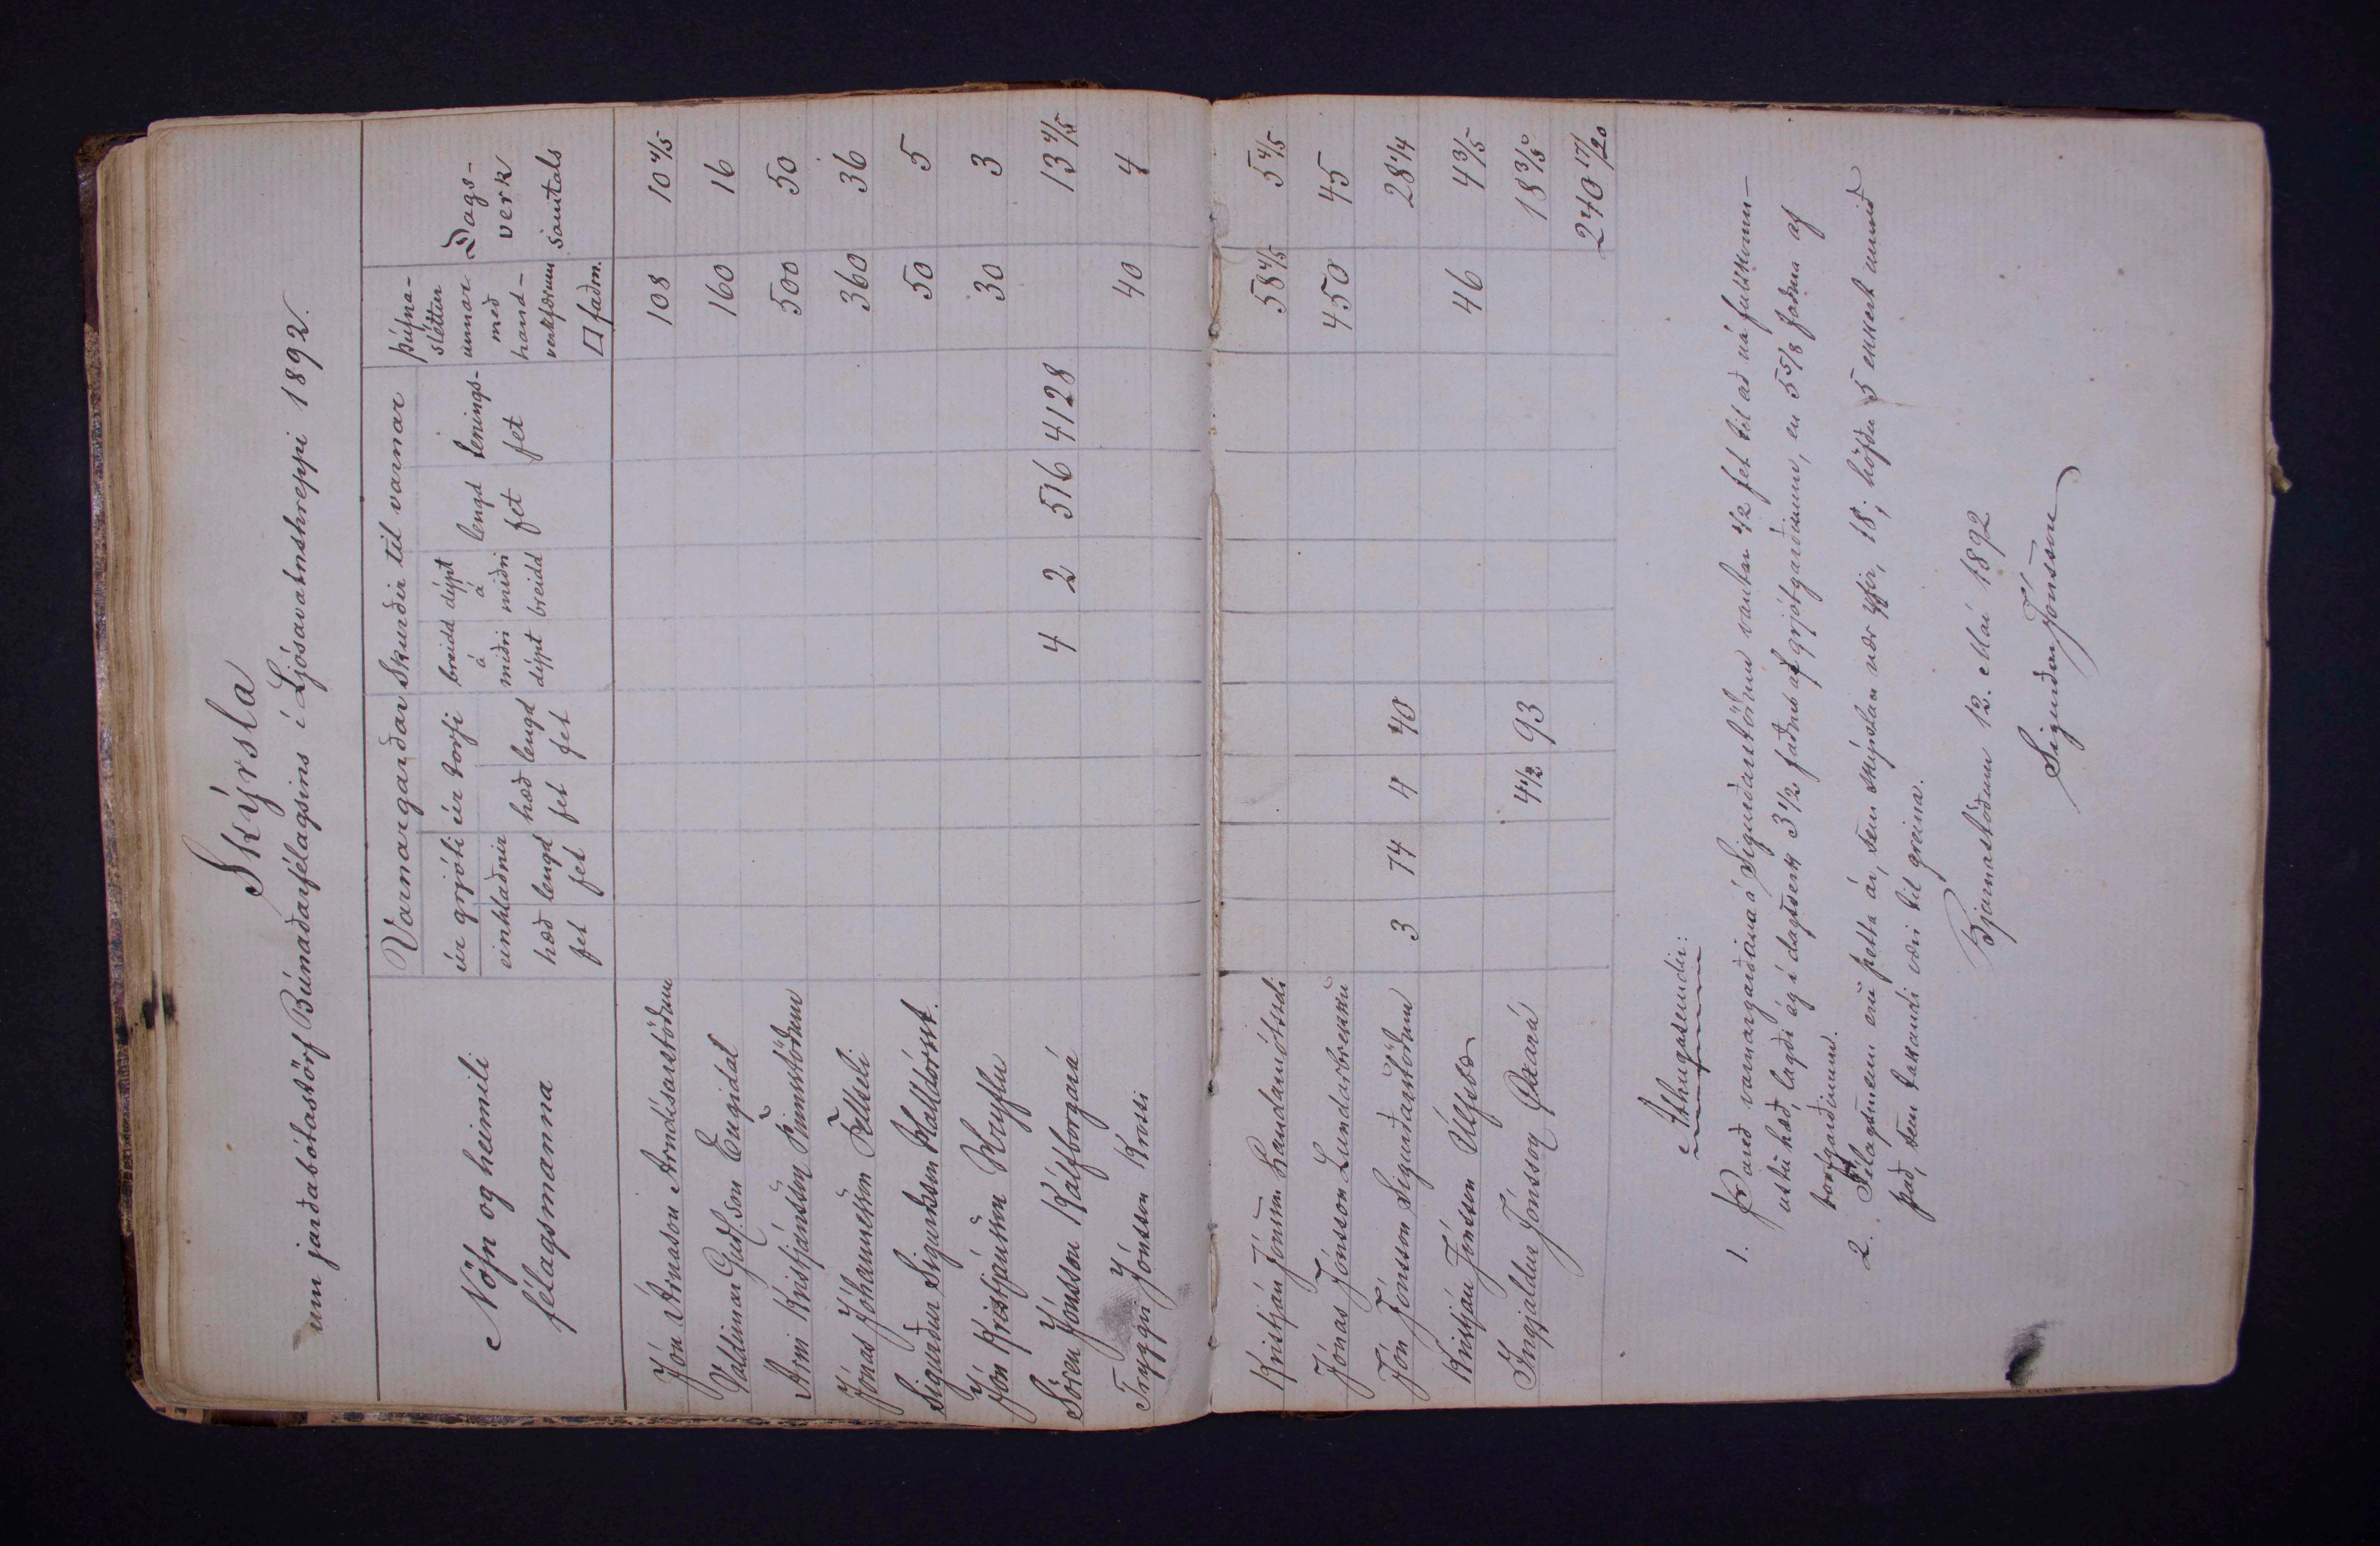 Skýrsla
um jarðabótastörf Búnaðarfélagsins í Ljósavatnshreppi 1892.
Nöfn og heimili félagsmanna
Varnargarðar
Skurðir til varnar
þúfna-sléttur unnar með hand-verkfærum □ faðm.
Dags-verk samtals
úr grjóti einhlaðnir
úr torfi
hæð fet
lengd fet
hæð fet
lengd fet
breidd á miðri dýpt
dýpt á miðri breidd
lengd fet
tenings-fet
Jón Árnason Arndísarstöðum 108 10 4/5
Valdimar Guðs.son Engidal 160 16
Árni Kristjánsson Finnsstöðum 500 50
Jónas Jóhannesson Fellseli 360 36
Sigurður Sigurðsson Halldórsst. 50 5
Jón Kristjánsson Hryflu 30 3
Sören Jónsson Kálfborgará 4 2 516 4128 13 4/5
Tryggvi Jónsson Krossi 40 4
Kristján Jónsson Landamótsseli 58 4/5 5 4/5
Jónas Jónsson Lundarbrekku 450 45
Jón Jónsson Sigurðarstöðum 3 74 4 40 28 1/4
Kristján Jónsson Úlfsbæ 46 4 3/5
Ingjaldur Jónsson Öxará 4 1/2 93 18 3/5
240 17/20
Athugasemdir:
1. Það varnargarðana á Sigurðarstöðum vantar 1/2 fet til að ná fullkomn-
ustu hæð, lagði ég í dagsverk 3 1/2 faðm af grjótgarðinum, en 5 5/8 faðma af
torfgarðinum.
2. Félagsmenn eru þetta ár, sem skýrslan nær yfir, 18; höfðu 5 ekkert unnið
það, sem takandi væri til greina.
Bjarnastöðum 12. Maí 1892
Sigurður Jónsson